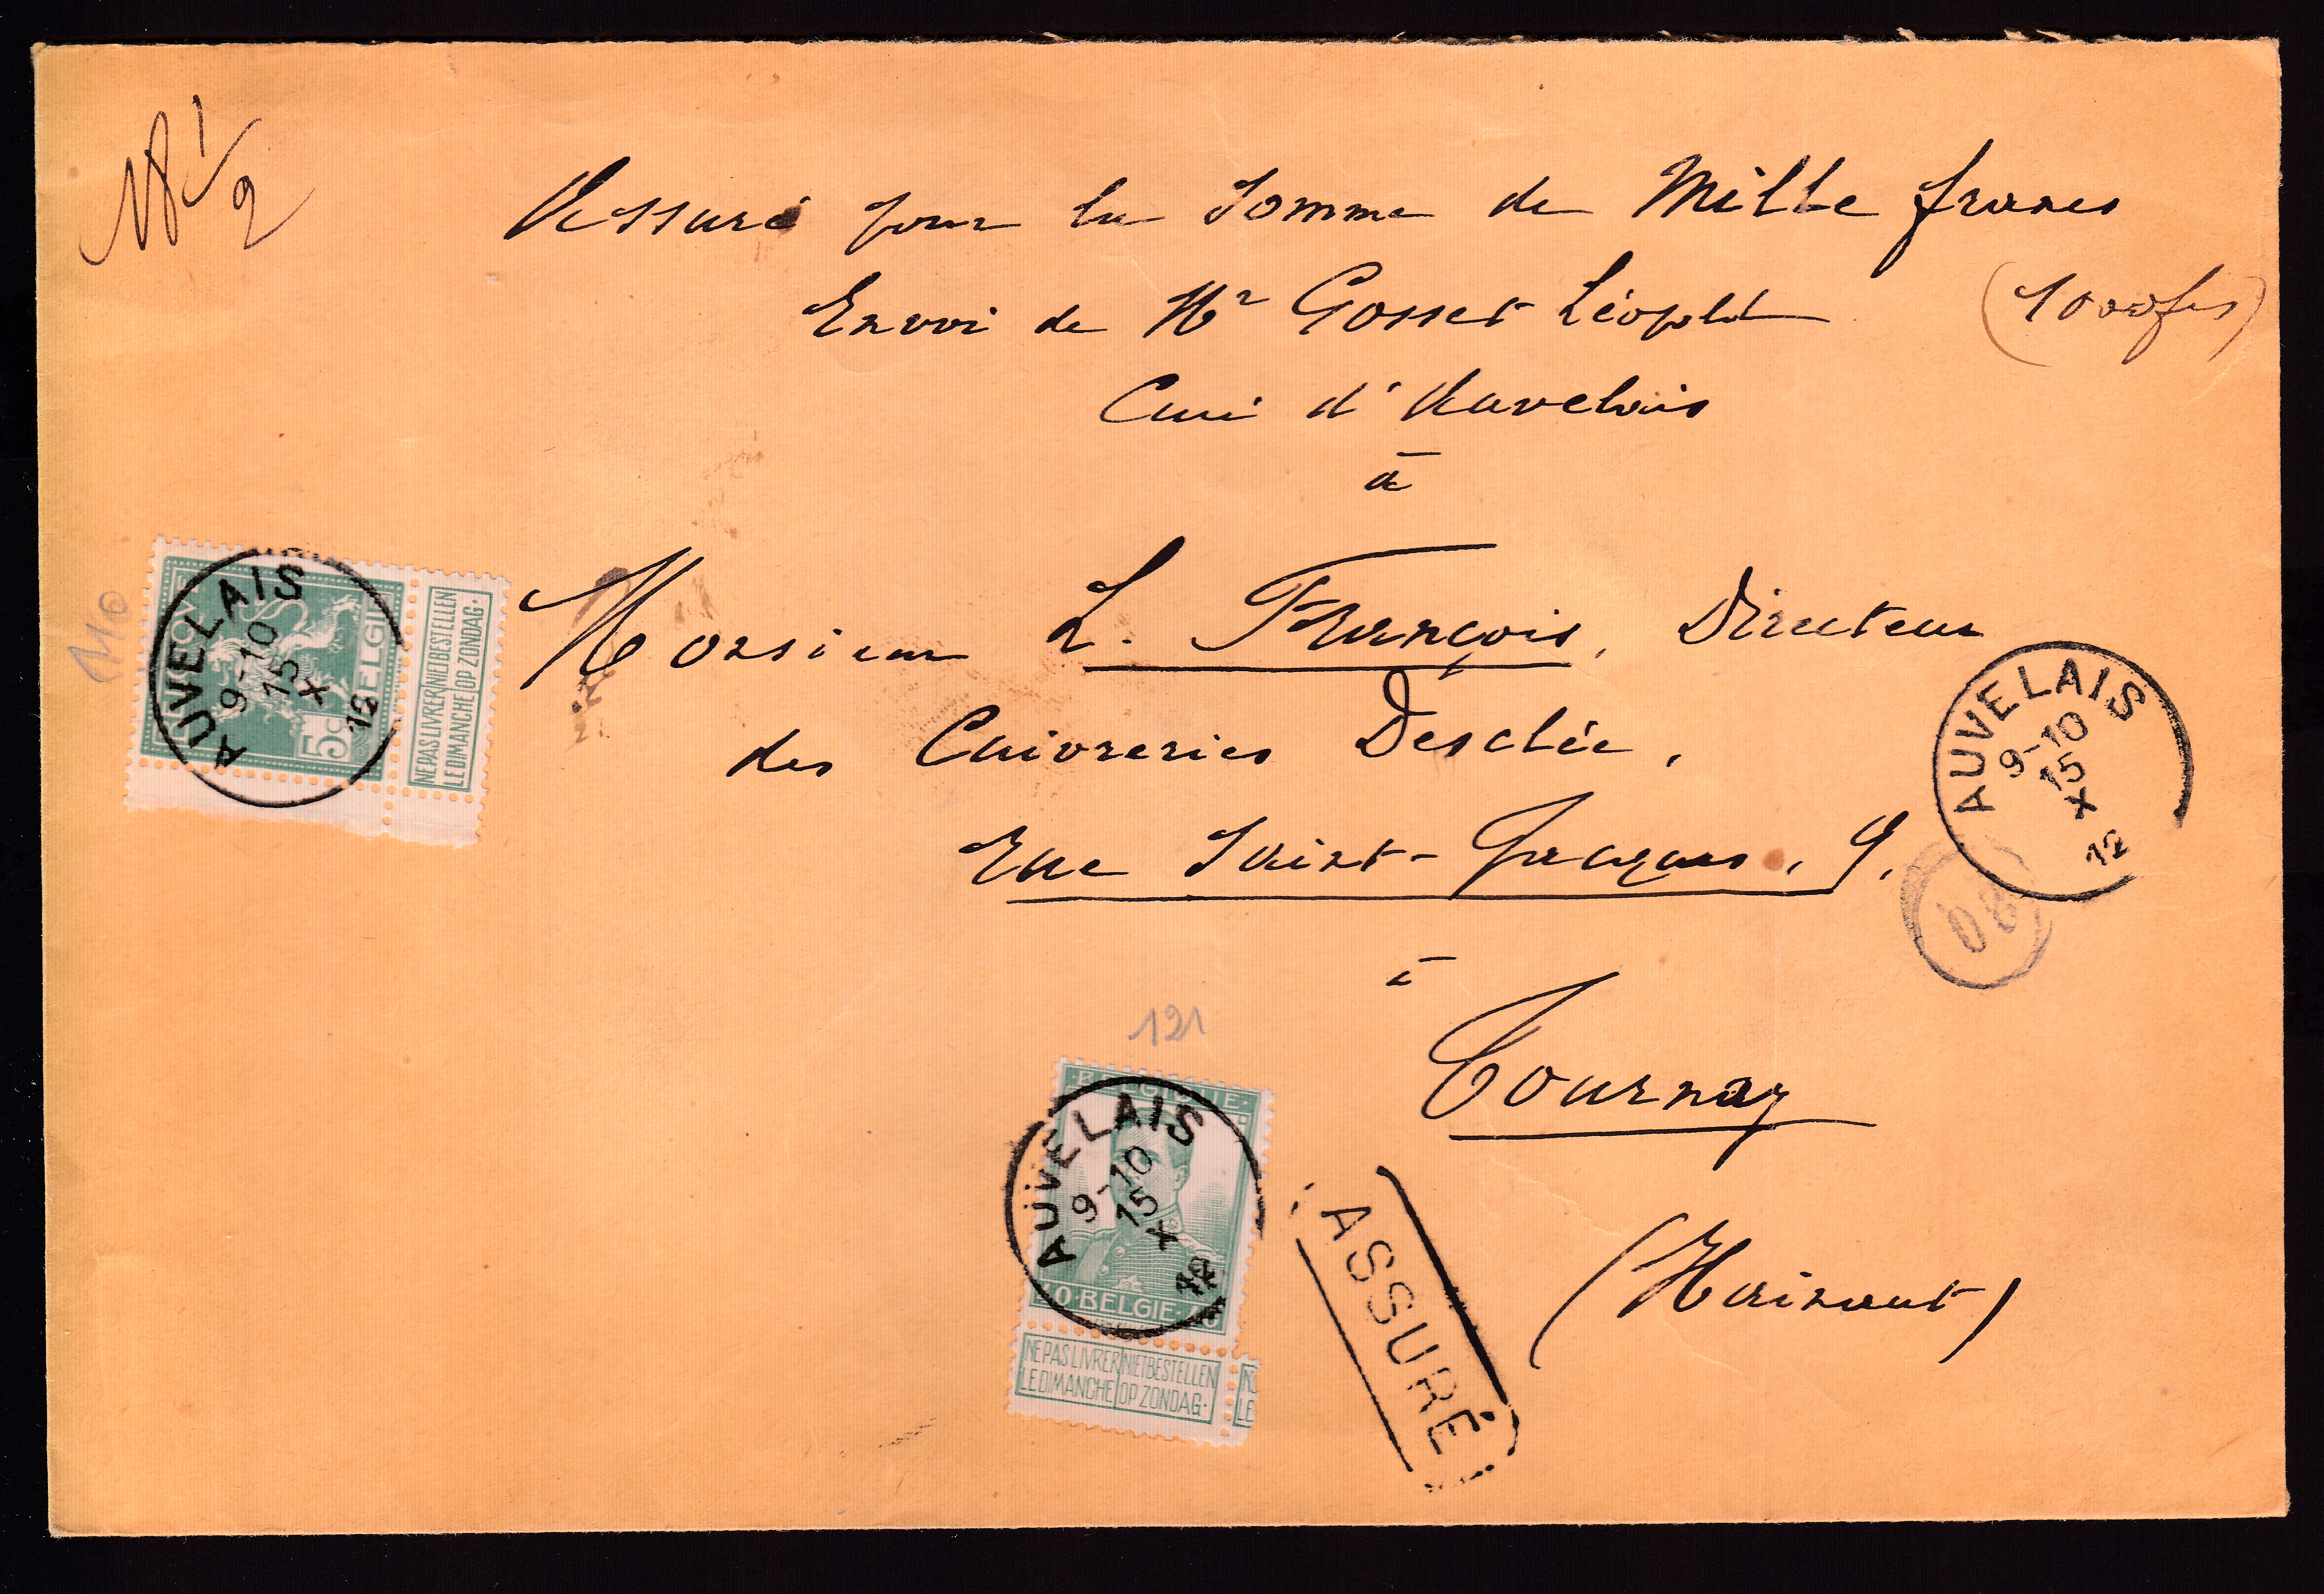 Assuré pour la somme de Mille francs
Envoi de Mr Gosset Léopold
(1000 frs)
Curé d'Auvelais
à
Monsieur L. François, Directeur
des Cuivreries Desclée,
Rue Saint-Jacques, 9.
à
Tournay
(Hainaut)
110
BELGIE
5c
NE PAS LIVRER LE DIMANCHE
NIET BESTELLEN OP ZONDAG.
AUVELAIS
9-10
15
X
12
AUVELAIS
9-10
15
X
12
121
BELGIQUE
BELGIE
NE PAS LIVRER LE DIMANCHE
NIET BESTELLEN OP ZONDAG.
AUVELAIS
9-10
15
X
12
ASSURÉ